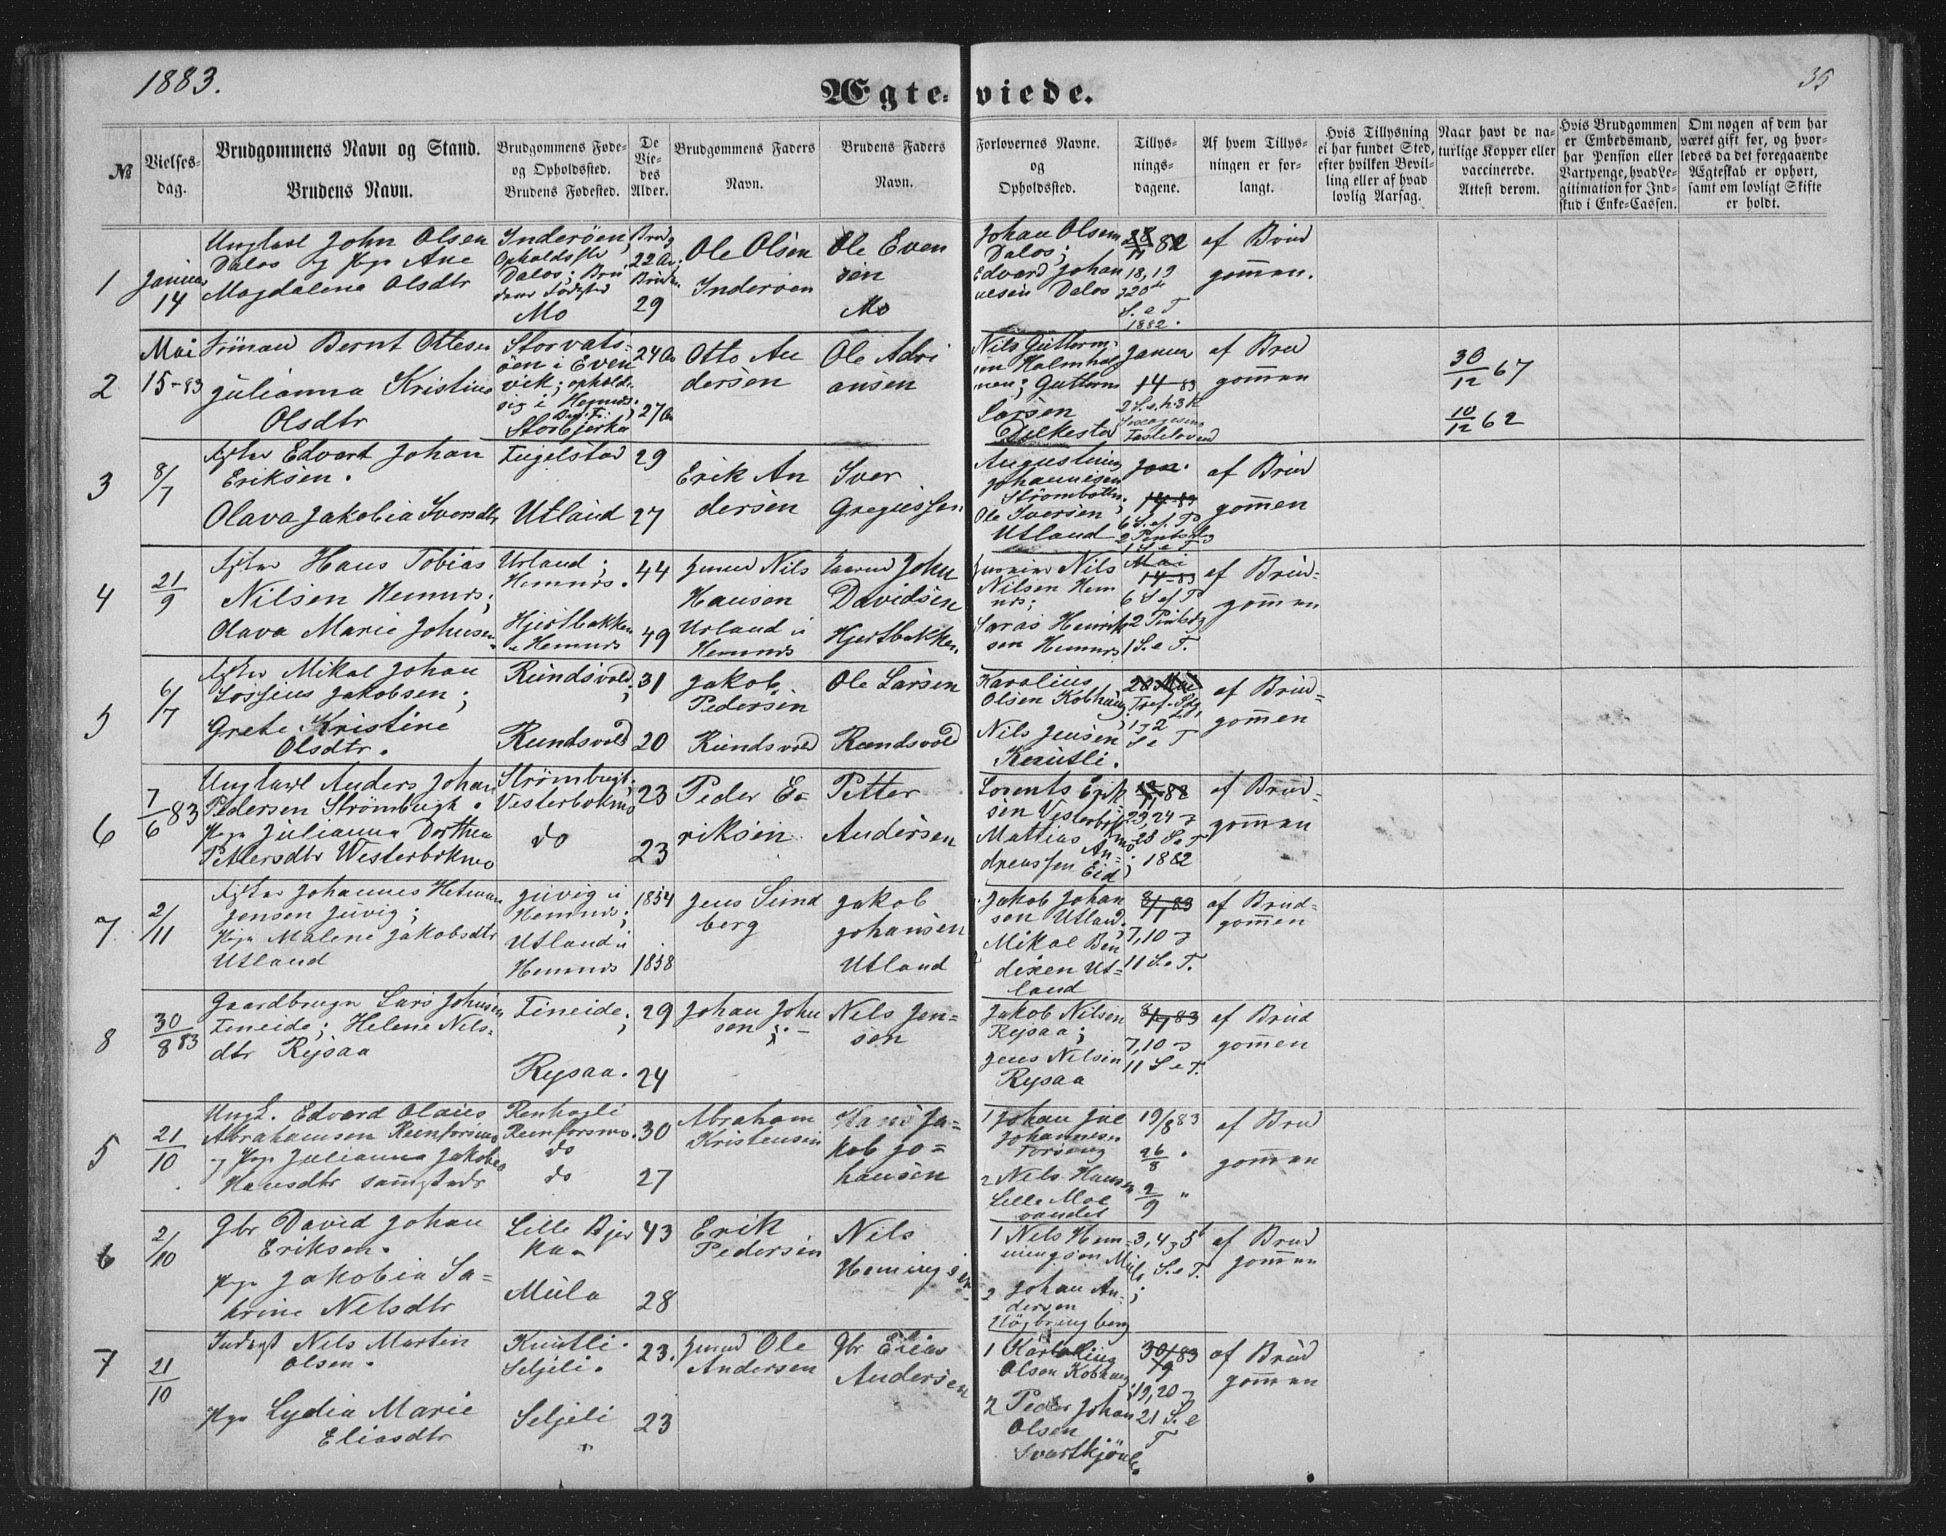 1883.
Ægte-viede.
35
№
Vielses-
dag.
Brudgommens Navn og Stand.
Brudens Navn.
Brudgommens Føde-
og Opholdssted.
Brudens Fødested.
De
Vie-
des
Alder.
Brudgommens Faders
Navn.
Brudens Faders
Navn.
Forlovernes Navne.
og
Opholdssted.
Tillys-
nings-
dagene.
Af hvem Tillys-
ningen er for-
langt.
Hvis Tillysning
ei har fundet Sted,
efter hvilken Bevil-
ling eller af hvad
lovlig Aarsag.
Naar havt de na-
turlige Kopper eller
vaccinerede.
Attest derom.
Hvis Brudgommen
er Embedsmand,
har Pension eller
Vartpenge, hvad Le-
gitimation for Ind-
skud i Enke-Cassen.
Om nogen af dem har
været gift før, og hvor-
ledes da det foregaaende
Ægteskab er ophørt,
samt om lovligt Skifte
er holdt.
1
Januar
14
Ungkarl John Olsen
Dalos og Pige Ane
Magdalena Olsdtr
Inderøen,
Opholdsste
Dalos; Bru
dens Fødsted
Mo
Brudg
22 Aar
Bruden
29
Ole Olsen
Inderøen
Ole Even
sen
Mo
Johan Olsen
Dalos;
Edvard Johan
nesen Dalos
18, 19
20de
S. e T
1882.
af Brud
gommen.
2
Mai
15-83
Bernt Ottesen
Julianna Kristine
Olsdtr
Storvats-
øen i Even
vik; ophold
sig i Hemnes.
Storbjerka
24 Aa
27 Aa
Otto An
dersen
Ole Adri
ansen
Nils Guttorm
sen Holmhol
men; Guttorm
Larsen
Dilkestad
Januar
14-83
2 S. e. h. 3 K
Fastelavnd
af Brud
gommen
30/12 67
10/12 62
3
8/7
Edvart Johan
Eriksen.
Olava Jakobia Iversdtr
Fugelstad
Utland
29
27
Erik An
dersen
Iver
Gregussen
Augustinus
Johannesen
Strømbotn;
Ole Iversen,
Utland
Jan.
14-83
6 S. ef. P
2 Pintsdg
1 S e T
af Brud
gommen
4
21/9
Hans Tobias
Nilsen Hemnes;
Olava Marie Johnsen.
Urland;
Hemnes.
Hjertbakken
i Hemnes
44
49
Nils
Hansen
Urland i
Hemnes
John
Davidsen
Hjertbakken
Nils
Nilsen Hem
nes;
Henrik
sen Hemnes
Mai
14-83
6 S ef P
2 Pintsdg
1 S. e T.
af Brud-
gommen
5
6/7
Mikal Johan
Jakobsen;
Grete Kristine
Olsdtr.
Rundsvold;
Rundsvold
31
20
Jakob
Pedersen
Rundsvold
Ole Larsen
Rundsvold
Karolius
Olsen Kobhaug;
Nils Jensen
Knutli.
20 Mai
Tref. Sdg
1 2
S e T
af Brud-
gommen
6
7/6 83
Ungkarl Anders Johan
Pedersen Strømbugt.
Pige Julianna Dorthea
Pettersdtr Westerbotnmo
Strømbugt;
Vesterbotnmo
do
23
23
Peder E-
riksen
Petter
Andersen
Lorents Erik
sen Vesterbotn
Mattias An-
dreassen Eid
23, 24
25 S. e T
1882
af Brud-
gommen
7
2/11
Johannes Hetman
Jensen Juvig;
Pige Malene Jakobsdtr
Utland
Juvig i
Hemnes;
Utland i
Hemnes
1854
1858
Jens Sund
berg
Jakob
Johansen
Utland
Jakob Johan
sen Utland;
Mikal Ben
dixen Ut-
land
8/7 83
7, 10
11 S. e T.
af Brud-
gommen
8
30/8 83
Gaardbruger Lars Johnsen
Fineide; Helene Nils-
dtr Rysaa
Fineide;
Rysaa.
29
24
Johan John
sen
Nils Jen-
sen
Jakob Nilsen
Rysaa;
Jens Nilsen
Rysaa
8/7 83
7, 10
11 S e T.
af Brud
gommen
5
21/10
Ungk. Edvard Olaus
Abrahamsen Reinforsmo
og Pige Julianna Jakobea
Hansdtr sammesteds
Renhagli
Reinforsmo.
do
do
30
27
Abraham
Kristensen
Hans Ja-
kob Jo-
hansen
1 Johan
Johannesen
2 Nils Hansen
Lille Mo
vandet
19/8 83
26/8 "
2/9 "
af Brud
gommen
6
2/10
Gbr David Johan
Eriksen.
Pige Jakobia Sa-
trine Nilsdtr
Lille Bjer
kaa
Mula
43
28
Erik
Pedersen
Nils
Hemingsen
1 Nils Hem-
mingsen Mula;
2 Johan An-
dersen
3, 4 5
S. e T.
af Brud
gommen
7
21/10
Inderst Nils Martin
Olsen.
Pige Lydia Marie
Eliasdtr
Knutli.
Seljeli.
Seljeli
"
23.
23
Ole
Andersen
Gbr Elias
Andersen
1 Karolius
Olsen Kobhaug
2 Peder Johan
Olsen
Svartkjønli.
30/9 83
19, 20
21 S. e
T
af Brud
gommen